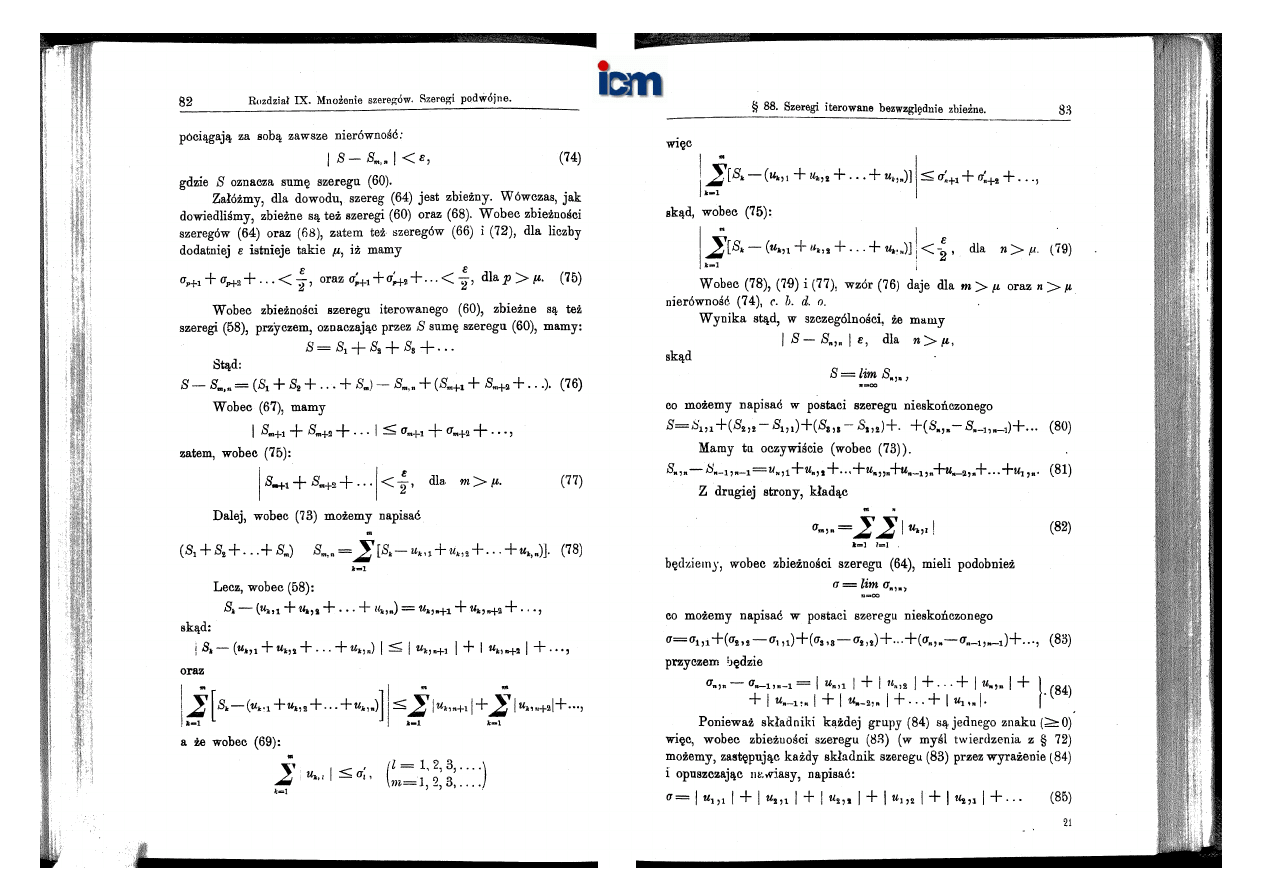 82 Rozdział IX. Mnożenie szeregów. Szeregi podwójne.
pociągają za sobą zawsze nierówność:
| S — S_{m,n} | < ε, (74)
gdzie S oznacza sumę szeregu (60).
Załóżmy, dla dowodu, szereg (64) jest zbieżny. Wówczas, jak
dowiedliśmy, zbieżne są też szeregi (60) oraz (68). Wobec zbieżności
szeregów (64) oraz (68), zatem też szeregów (66) i (72), dla liczby
dodatniej ε istnieje takie μ, iż mamy
σ_{p+1} + σ_{p+2} + . . . < ε/2, oraz σ'_{p+1} + σ'_{p+2} + . . . < ε/2, dla p > μ. (75)
Wobec zbieżności szeregu iterowanego (60), zbieżne są też
szeregi (58), przyczem, oznaczając przez S sumę szeregu (60), mamy:
S = S_1 + S_2 + S_3 + . . .
Stąd:
S — S_{m,n} = (S_1 + S_2 + . . . + S_m) — S_{m,n} + (S_{m+1} + S_{m+2} + . . .). (76)
Wobec (67), mamy
| S_{m+1} + S_{m+2} + . . . | ≤ σ_{m+1} + σ_{m+2} + . . .,
zatem, wobec (75):
| S_{m+1} + S_{m+2} + . . . | < ε/2, dla m > μ. (77)
Dalej, wobec (73) możemy napisać
(S_1 + S_2 + . . . + S_m) S_{m,n} = ∑_{k=1}^{m} [S_k — u_{k,1} + u_{k,2} + . . . + u_{k,n})]. (78)
Lecz, wobec (58):
S_k — (u_{k,1} + u_{k,2} + . . . + u_{k,n}) = u_{k,n+1} + u_{k,n+2} + . . .,
skąd:
| S_k — (u_{k,1} + u_{k,2} + . . . + u_{k,n}) | ≤ | u_{k,n+1} | + | u_{k,n+2} | + . . .,
oraz
| ∑_{k=1}^{m} [S_k — (u_{k,1} + u_{k,2} + . . . + u_{k,n})] | ≤ ∑_{k=1}^{m} | u_{k,n+1} | + ∑_{k=1}^{m} | u_{k,n+2} | + . . .,
a że wobec (69):
∑_{k=1}^{m} | u_{k,l} | ≤ σ'_l, (l = 1, 2, 3, . . . .)
(m = 1, 2, 3, . . . .)
icm
§ 88. Szeregi iterowane bezwzględnie zbieżne. 83
więc
| ∑_{k=1}^{m} [S_k — (u_{k,1} + u_{k,2} + . . . + u_{k,n})] | ≤ σ'_{n+1} + σ'_{n+2} + . . .,
skąd, wobec (75):
| ∑_{k=1}^{m} [S_k — (u_{k,1} + u_{k,2} + . . . + u_{k,n})] | < ε/2, dla n > μ. (79)
Wobec (78), (79) i (77), wzór (76) daje dla m > μ oraz n > μ
nierówność (74), c. b. d. o.
Wynika stąd, w szczególności, że mamy
| S — S_{n,n} | ε, dla n > μ,
skąd
S = lim_{n=∞} S_{n,n},
co możemy napisać w postaci szeregu nieskończonego
S = S_{1,1} + (S_{2,2} — S_{1,1}) + (S_{3,3} — S_{2,2}) + . + (S_{n,n} — S_{n—1,n—1}) + ... (80)
Mamy tu oczywiście (wobec (73)).
S_{n,n} — S_{n—1,n—1} = u_{n,1} + u_{n,2} + ... + u_{n,n} + u_{n—1,n} + u_{n—2,n} + ... + u_{1,n}. (81)
Z drugiej strony, kładąc
σ_{m,n} = ∑_{k=1}^{m} ∑_{l=1}^{n} | u_{k,l} | (82)
będziemy, wobec zbieżności szeregu (64), mieli podobnież
σ = lim_{n=∞} σ_{n,n},
co możemy napisać w postaci szeregu nieskończonego
σ = σ_{1,1} + (σ_{2,2} — σ_{1,1}) + (σ_{3,3} — σ_{2,2}) + ... + (σ_{n,n} — σ_{n—1,n—1}) + ..., (83)
przyczem będzie
σ_{n,n} — σ_{n—1,n—1} = | u_{n,1} | + | u_{n,2} | + . . . + | u_{n,n} | +
+ | u_{n—1,n} | + | u_{n—2,n} | + . . . + | u_{1,n} |. } . (84)
Ponieważ składniki każdej grupy (84) są jednego znaku (≥ 0)
więc, wobec zbieżności szeregu (83) (w myśl twierdzenia z § 72)
możemy, zastępując każdy składnik szeregu (83) przez wyrażenie (84)
i opuszczając nawiasy, napisać:
σ = | u_{1,1} | + | u_{2,1} | + | u_{2,2} | + | u_{1,2} | + | u_{3,1} | + . . . (85)
21